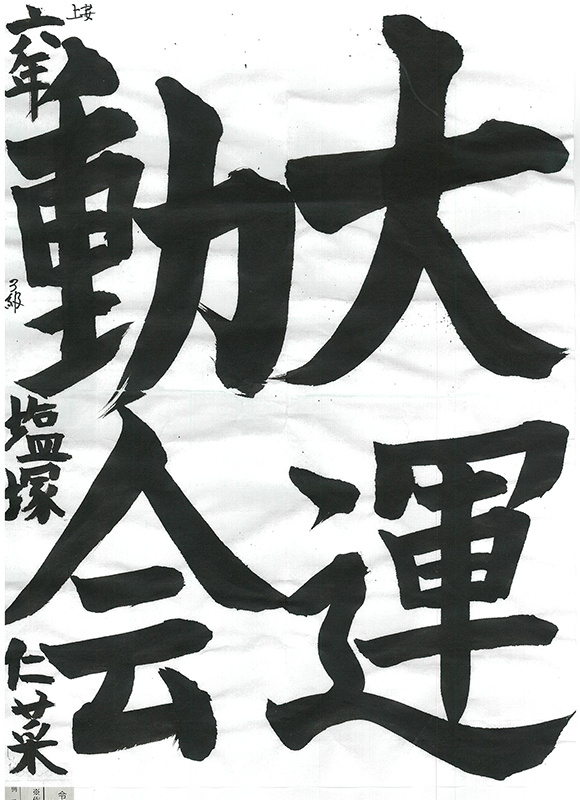 大運
動会
上安
六年
塩塚
仁菜